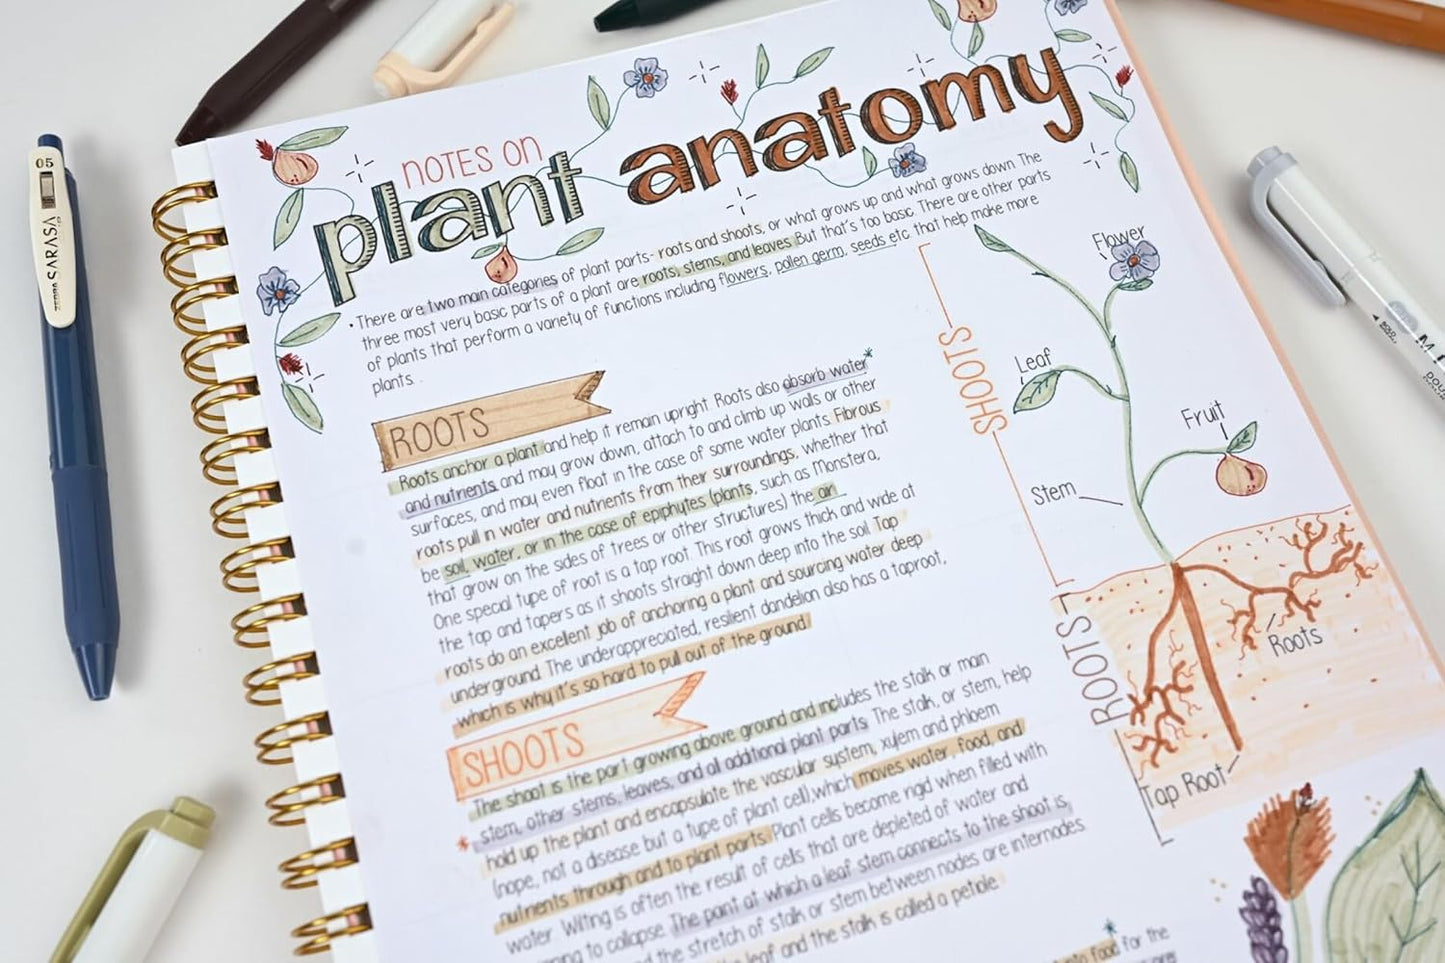 NOTES ON
plant anatomy
• There are two main categories of plant parts- roots and shoots, or what grows up and what grows down. The
three most very basic parts of a plant are roots, stems, and leaves. But that's too basic. There are other parts
of plants that perform a variety of functions including flowers, pollen germ, seeds etc that help make more
plants.
ROOTS
Roots anchor a plant and help it remain upright. Roots also absorb water*
and nutrients and may grow down, attach to and climb up walls or other
surfaces, and may even float in the case of some water plants. Fibrous
roots pull in water and nutrients from their surroundings, whether that
be soil, water, or in the case of epiphytes (plants, such as Monstera,
that grow on the sides of trees or other structures) the air!
One special type of root is a tap root. This root grows thick and wide at
the top and tapers as it shoots straight down deep into the soil. Tap
roots do an excellent job of anchoring a plant and sourcing water deep
underground. The underappreciated, resilient dandelion also has a taproot,
which is why it's so hard to pull out of the ground!
SHOOTS
The shoot is the part growing above ground and includes the stalk or main
* stem, other stems, leaves, and all additional plant parts. The stalk, or stem, help
hold up the plant and encapsulate the vascular system, xylem and phloem
(nope, not a disease but a type of plant cell), which moves water, food, and
nutrients through and to plant parts. Plant cells become rigid when filled with
water. Wilting is often the result of cells that are depleted of water and
to collapse. The point at which a leaf stem connects to the shoot is,
the stretch of stalk or stem between nodes are internodes.
leaf and the stalk is called a petiole.
into food for the
SHOOTS
Flower
Leaf
Fruit
Stem
ROOTS
Roots
Tap Root
05
ZEBRA SARASA